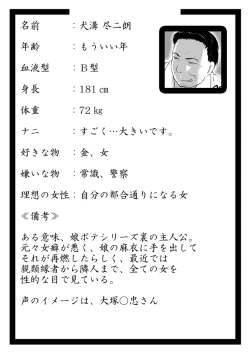 名前　　：犬溝 尽二朗
年齢　　：もういい年
血液型　：Ｂ型
身長　　：181 ㎝
体重　　：72 ㎏
ナニ　　：すごく…大きいです。
好きな物　：金、女
嫌いな物　：常識、警察
理想の女性：自分の都合通りになる女
≪備考≫
ある意味、娘ボテシリーズ裏の主人公。
元々女癖が悪く、娘の麻衣に手を出して
それが再燃したらしく、最近では
親類縁者から隣人まで、全ての女を
性的な目で見ている。
声のイメージは、大塚○忠さん